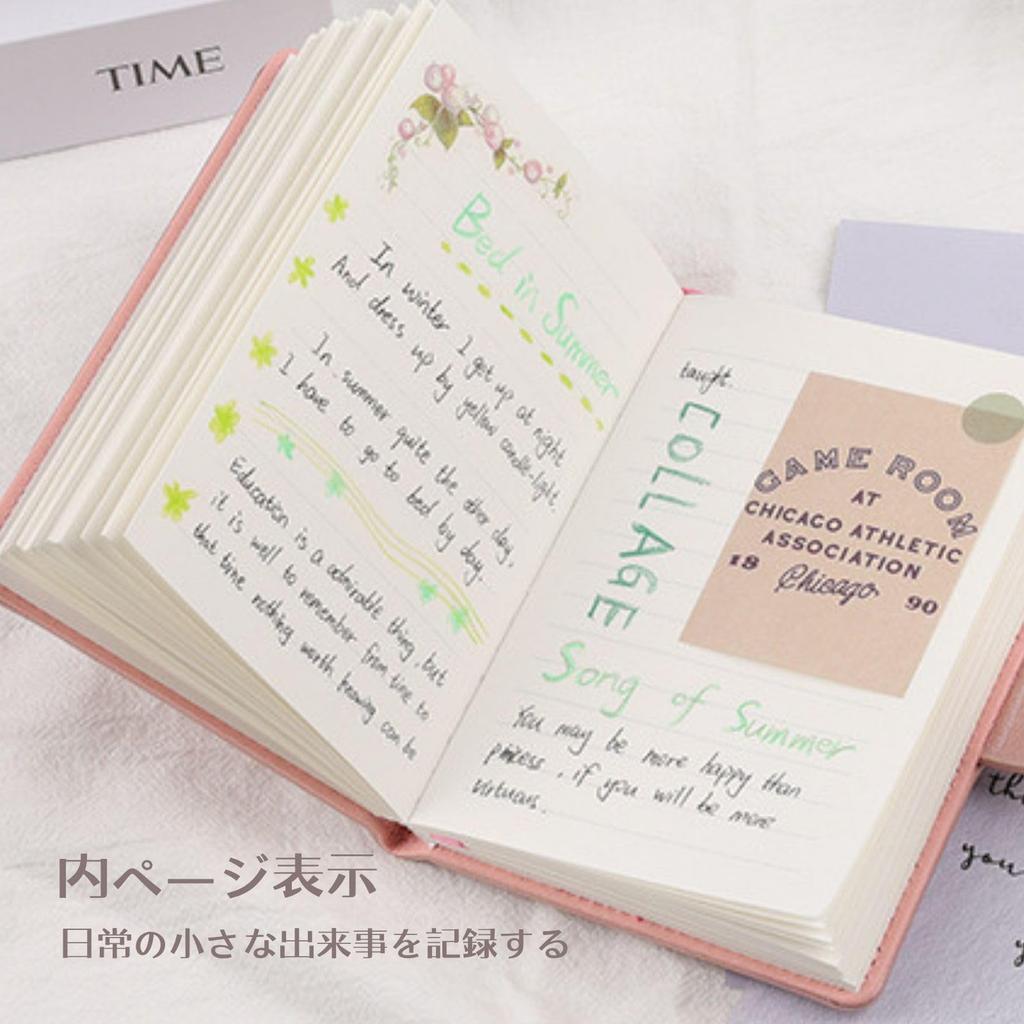 TIME
Bed in Summer
In winter I get up at night
And dress up by yellow candle-light.
In summer quite the other day,
I have to go to bed by day.
Education is a admirable thing, but
it is well to remember from time to
that time nothing worth knowing can be
taught.
COLLAGE
GAME ROOM
AT
CHICAGO ATHLETIC
ASSOCIATION
18 Chicago 90
Song of Summer
You may be more happy than
princess, if you will be more
virtuous.
you
内ページ表示
日常の小さな出来事を記録する